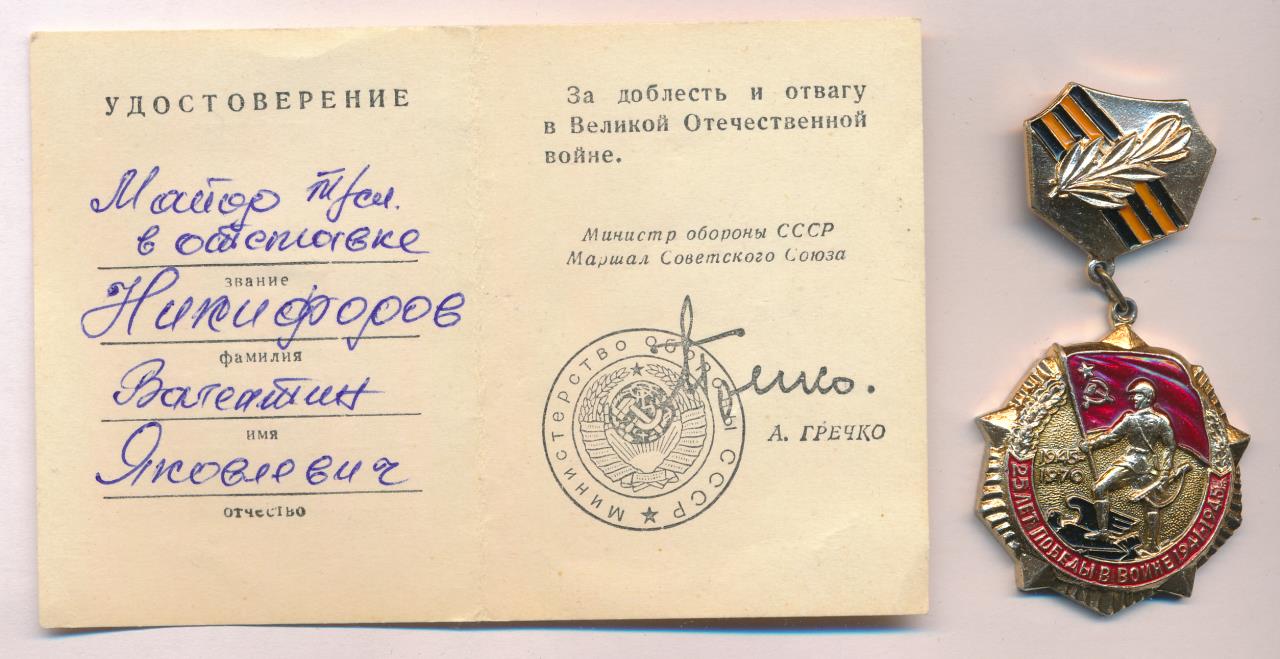 УДОСТОВЕРЕНИЕ
Майор т/сл.
в отставке
звание
Никифоров
фамилия
Валентин
имя
Яковлевич
отчество
За доблесть и отвагу
в Великой Отечественной
войне.
Министр обороны СССР
Маршал Советского Союза
Министерство Обороны СССР
А. ГРЕЧКО
1945
1970
25 ЛЕТ ПОБЕДЫ В ВОЙНЕ 1941-1945гг.